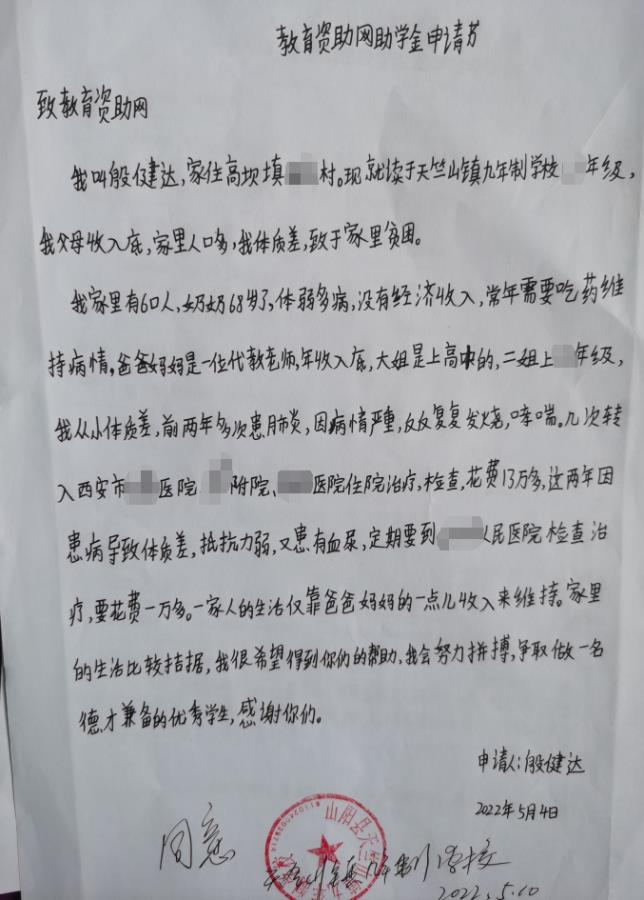 教育资助网助学金申请书
致教育资助网
我叫殷健达,家住高坝填村。现就读于天竺山镇九年制学校年级,
我父母收入底,家里人口多,我体质差,致于家里贫困。
我家里有6口人,奶奶68岁了,体弱多病,没有经济收入,常年需要吃药维
持病情。爸爸妈妈是一位代教老师,年收入底,大姐是上高中的,二姐上年级,
我从小体质差,前两年多次患肺炎,因病情严重,反反复复发烧,哮喘。几次转
入西安市医院附院、医院住院治疗,检查,花费13万多,这两年因
患病导致体质差,抵抗力弱,又患有血尿,定期要到人民医院检查治
疗,要花费一万多。一家人的生活仅靠爸爸妈妈的一点儿收入来维持。家里
的生活比较拮据,我很希望得到你们的帮助,我会努力拼搏,争取做一名
德才兼备的优秀学生,感谢你们。
申请人:殷健达
2022年5月4日
同意
山阳县天竺山镇九年制学校
2022.5.10